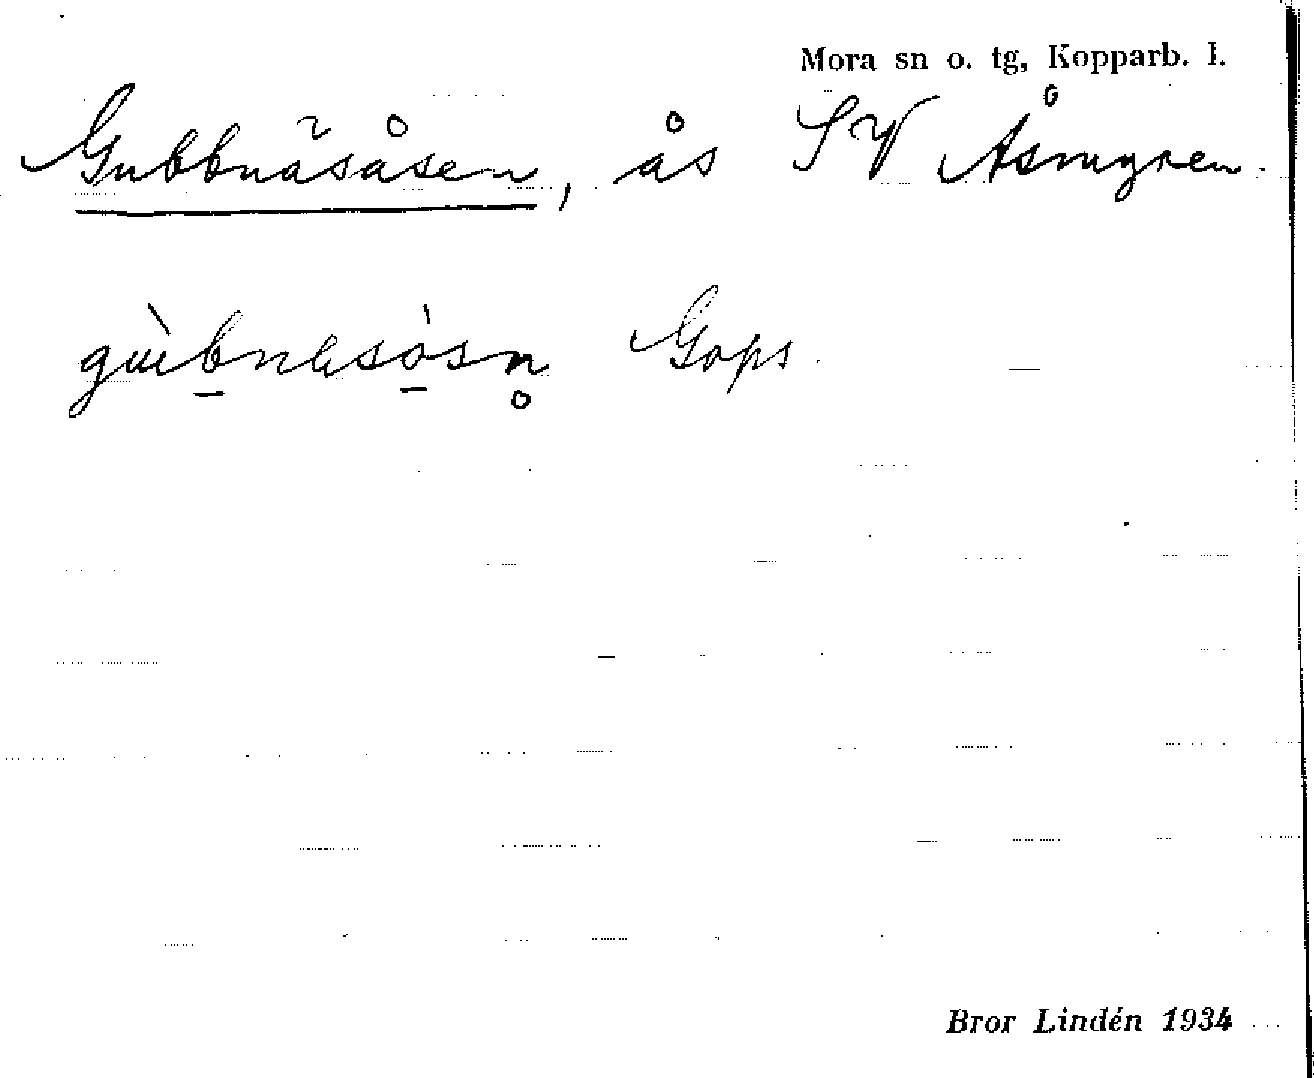 Mora sn o. tg, Kopparb. l.
Gubbnäsåsen, ås SV Åsmyren.
Gops.
Bror Lindén 1934